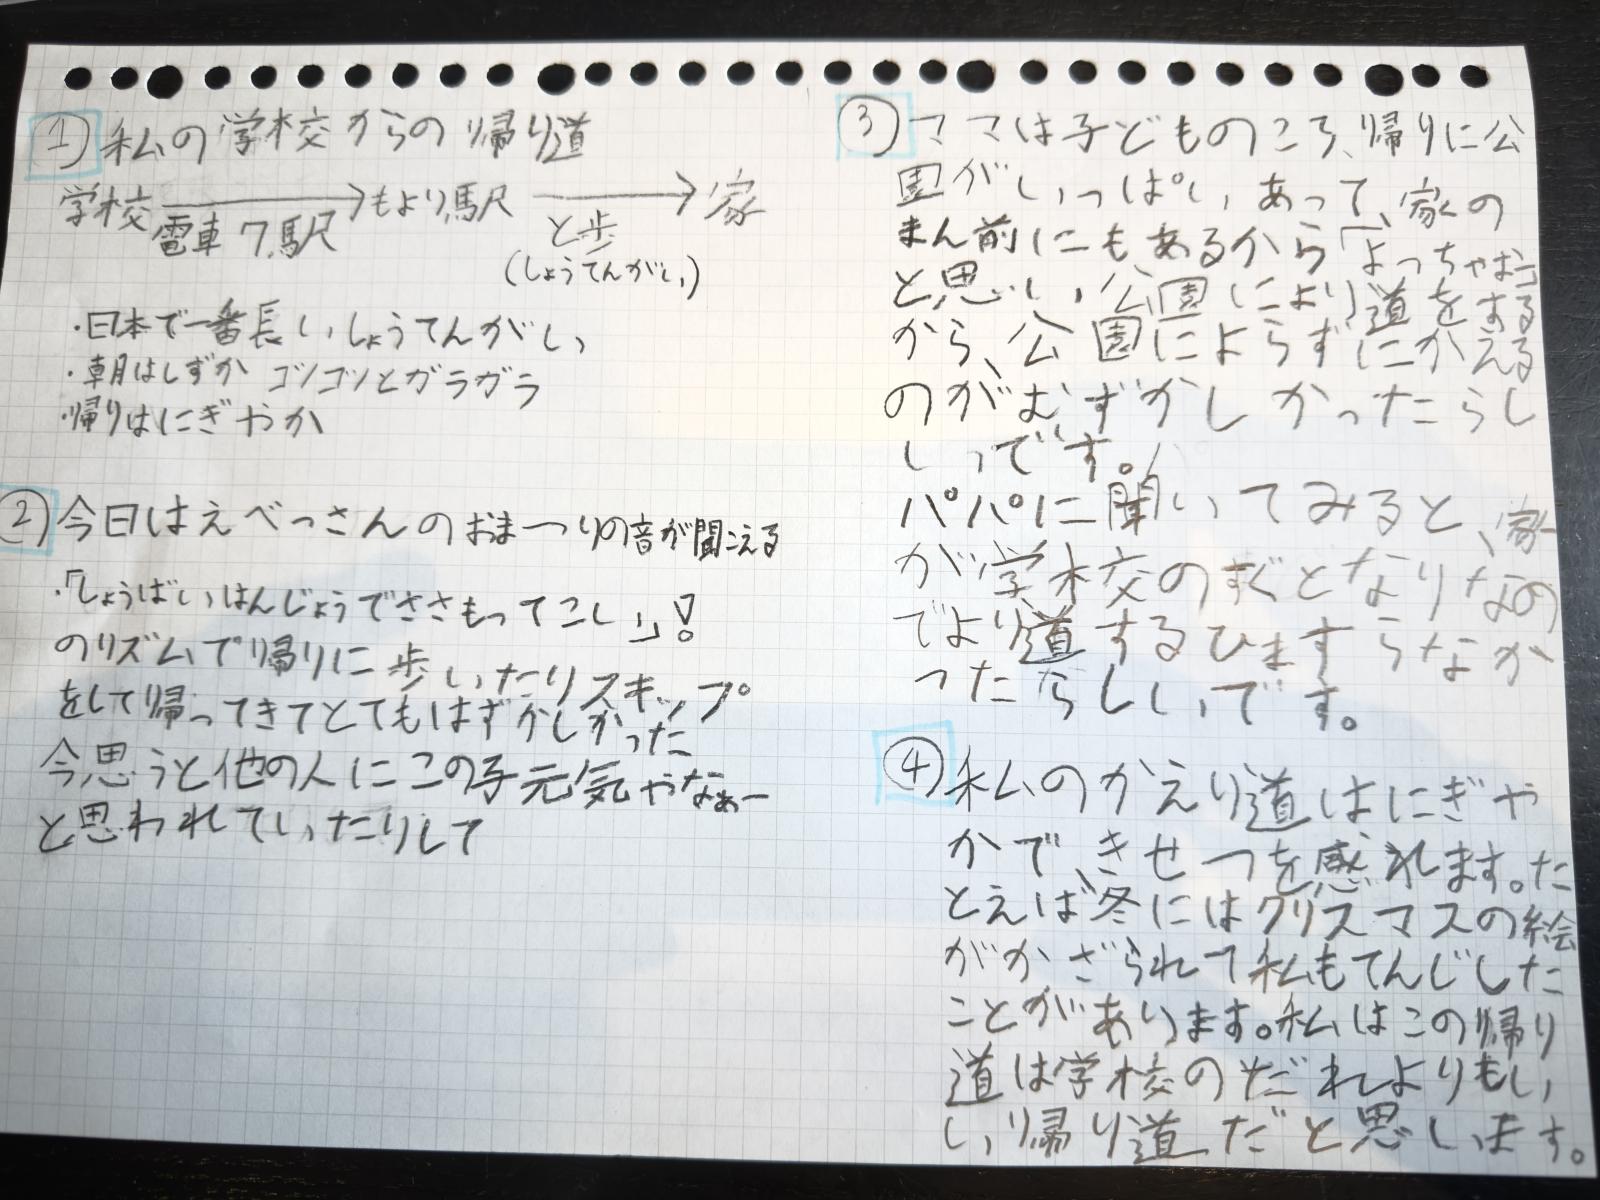 ① 私の学校からの帰り道
学校 → もより駅 → 家
電車 7駅 と歩
(しょうてんがい)
・日本で一番長いしょうてんがい
・朝はしずか コツコツとガラガラ
・帰りはにぎやか
② 今日はえべっさんのおまつりの音が聞こえる
・「しょうばいはんじょうでささもってこい」!
のリズムで帰りに歩いたりスキップ
をして帰ってきてとてもはずかしかった
今思うと他の人にこの子元気やなぁー
と思われていったりして
③ ママは子どものころ、帰りに公
園がいっぱいあって、家の
まん前にもあるから「よっちゃお」
と思い公園により道をする
から、公園によらずにかえる
のがむずかしかったらし
いです。
パパに聞いてみると、家
が学校のすぐとなりなの
でより道するひますらなか
ったらしいです。
④ 私のかえり道はにぎや
かで、きせつを感れます。た
とえば冬にはクリスマスの絵
がかざられて私もてんじした
ことがあります。私はこの帰り
道は学校のだれよりもい
い帰り道だと思います。